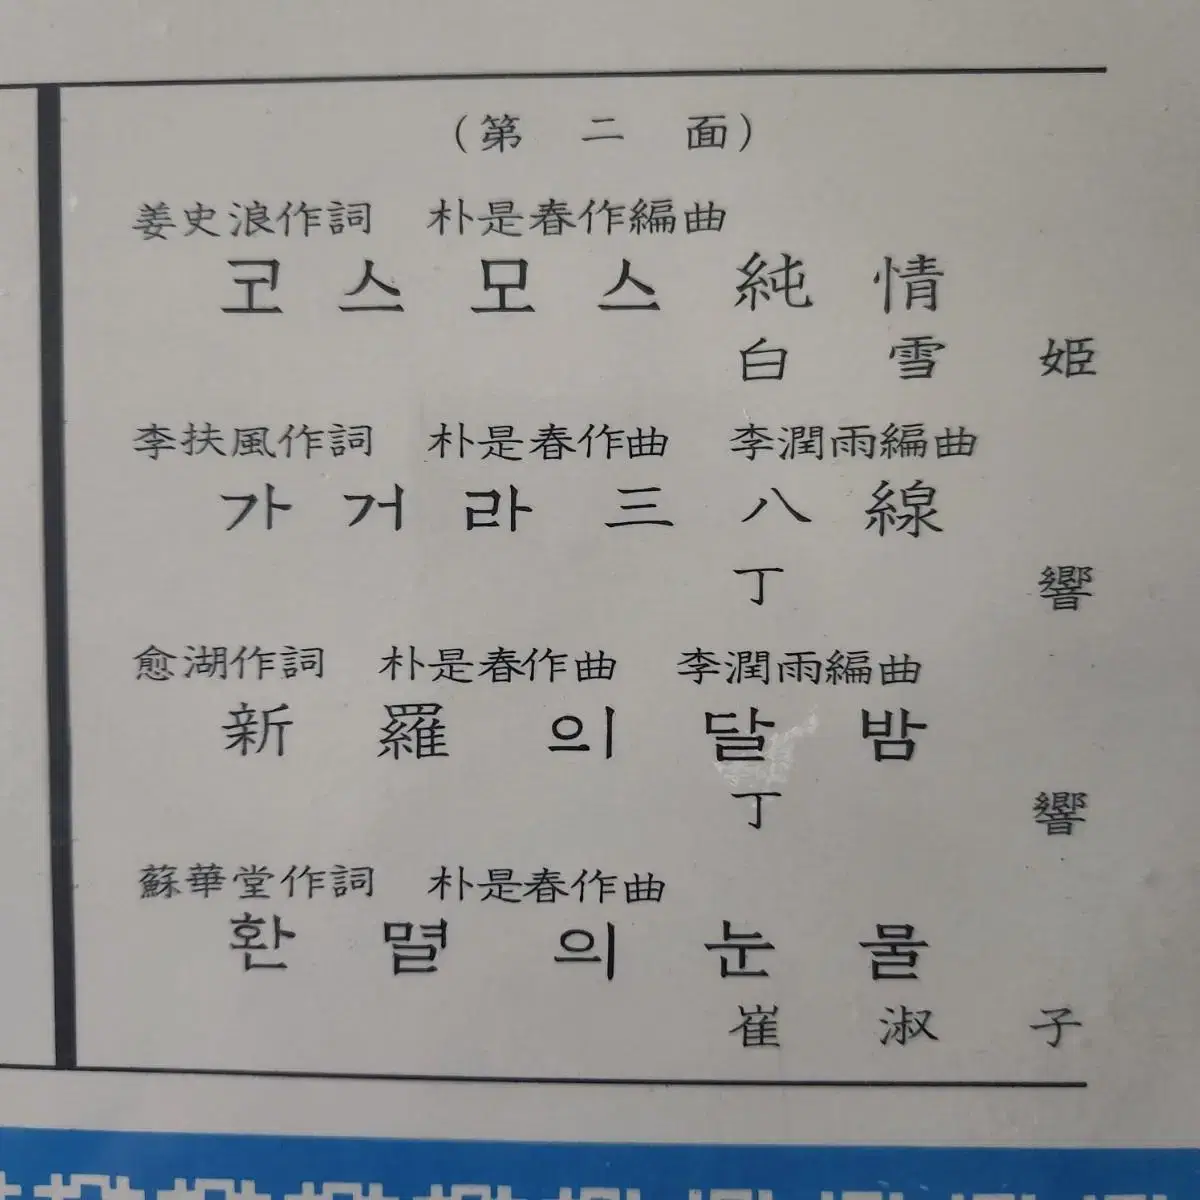 (第二面)
姜史浪作詞 朴是春作編曲
코스모스純情
白雪姬
李扶風作詞 朴是春作曲 李潤雨編曲
가거라三八線
丁響
愈湖作詞 朴是春作曲 李潤雨編曲
新羅의달밤
丁響
蘇華堂作詞 朴是春作曲
환멸의눈물
崔淑子